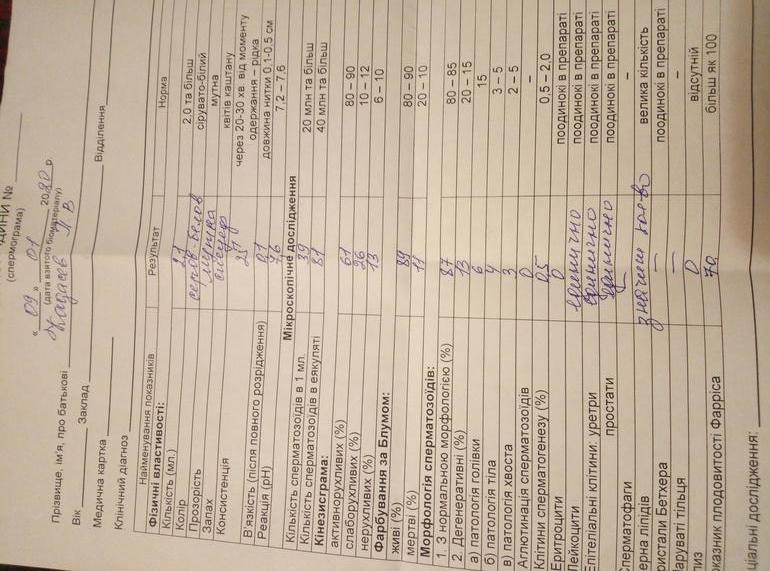 ДИНИ №
(спермограма)
« 09 » 01 2020 р.
(дата взятого біоматеріалу)
Прізвище, ім'я, про батькові
Вік Заклад Відділення
Медична картка
Клінічний діагноз
Найменування показників Результат Норма
Фізичні властивості:
Кількість (мл.) 2,0 та більш
Колір сірувато-білий
Прозорість мутна
Запах квітів каштану
Консистенція через 20-30 хв від моменту
одержання – рідка
В'язкість (після повного розрідження) 0,1 довжина нитки 0,1-0,5 см
Реакція (pH) 7,6 7,2 – 7,6
Мікроскопічне дослідження
Кількість сперматозоїдів в 1 мл. 39 20 млн та більш
Кількість сперматозоїдів в еякуляті 81 40 млн та більш
Кінезисграма:
активнорухливих (%) 61 80 – 90
слаборухливих (%) 26 10 – 12
нерухливих (%) 13 6 – 10
Фарбування за Блумом:
живі (%) 89 80 – 90
мертві (%) 11 20 – 10
Морфологія сперматозоїдів:
1. З нормальною морфологією (%) 87 80 – 85
2. Дегенеративні (%) 13 20 – 15
а) патологія голівки 6 15
б) патологія тіла 4 3 – 5
в) патологія хвоста 3 2 – 5
Аглютинація сперматозоїдів 0 –
Клітини сперматогенезу (%) 0,5 0,5 – 2,0
Еритроцити 0 поодинокі в препараті
Лейкоцити единично поодинокі в препараті
Епітеліальні клітини: уретри единично поодинокі в препараті
простати единично поодинокі в препараті
Сперматофаги – –
зерна ліпідів велика кількість
ристали Бетхера – поодинокі в препараті
аруваті тільця – –
лиз 0 відсутній
оказник плодовитості Фарріса 70 більш як 100
ціальні дослідження: